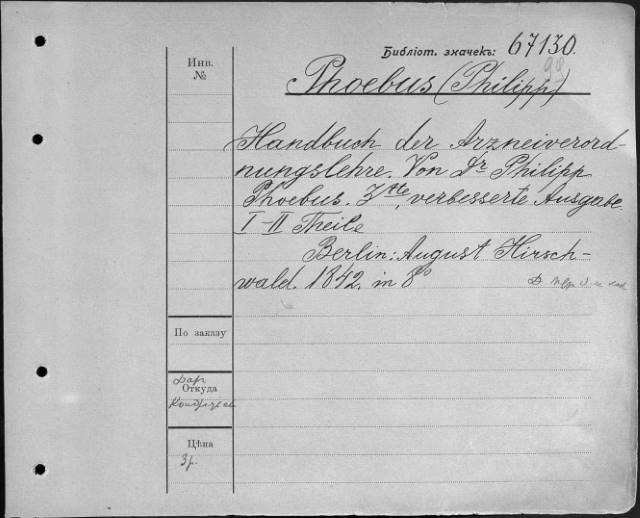 Библіот. значекъ: 67130.
93
Инв.
№
Phoebus (Philipp)
Handbuch der Arzneiverord-
nungslehre. Von Dr Philipp
Phoebus. 3tte, verbesserte Ausgabe.
I–II Theile
Berlin: August Hirsch-
wald. 1842. in 8°
По заказу
Откуда
Цѣна
3р.